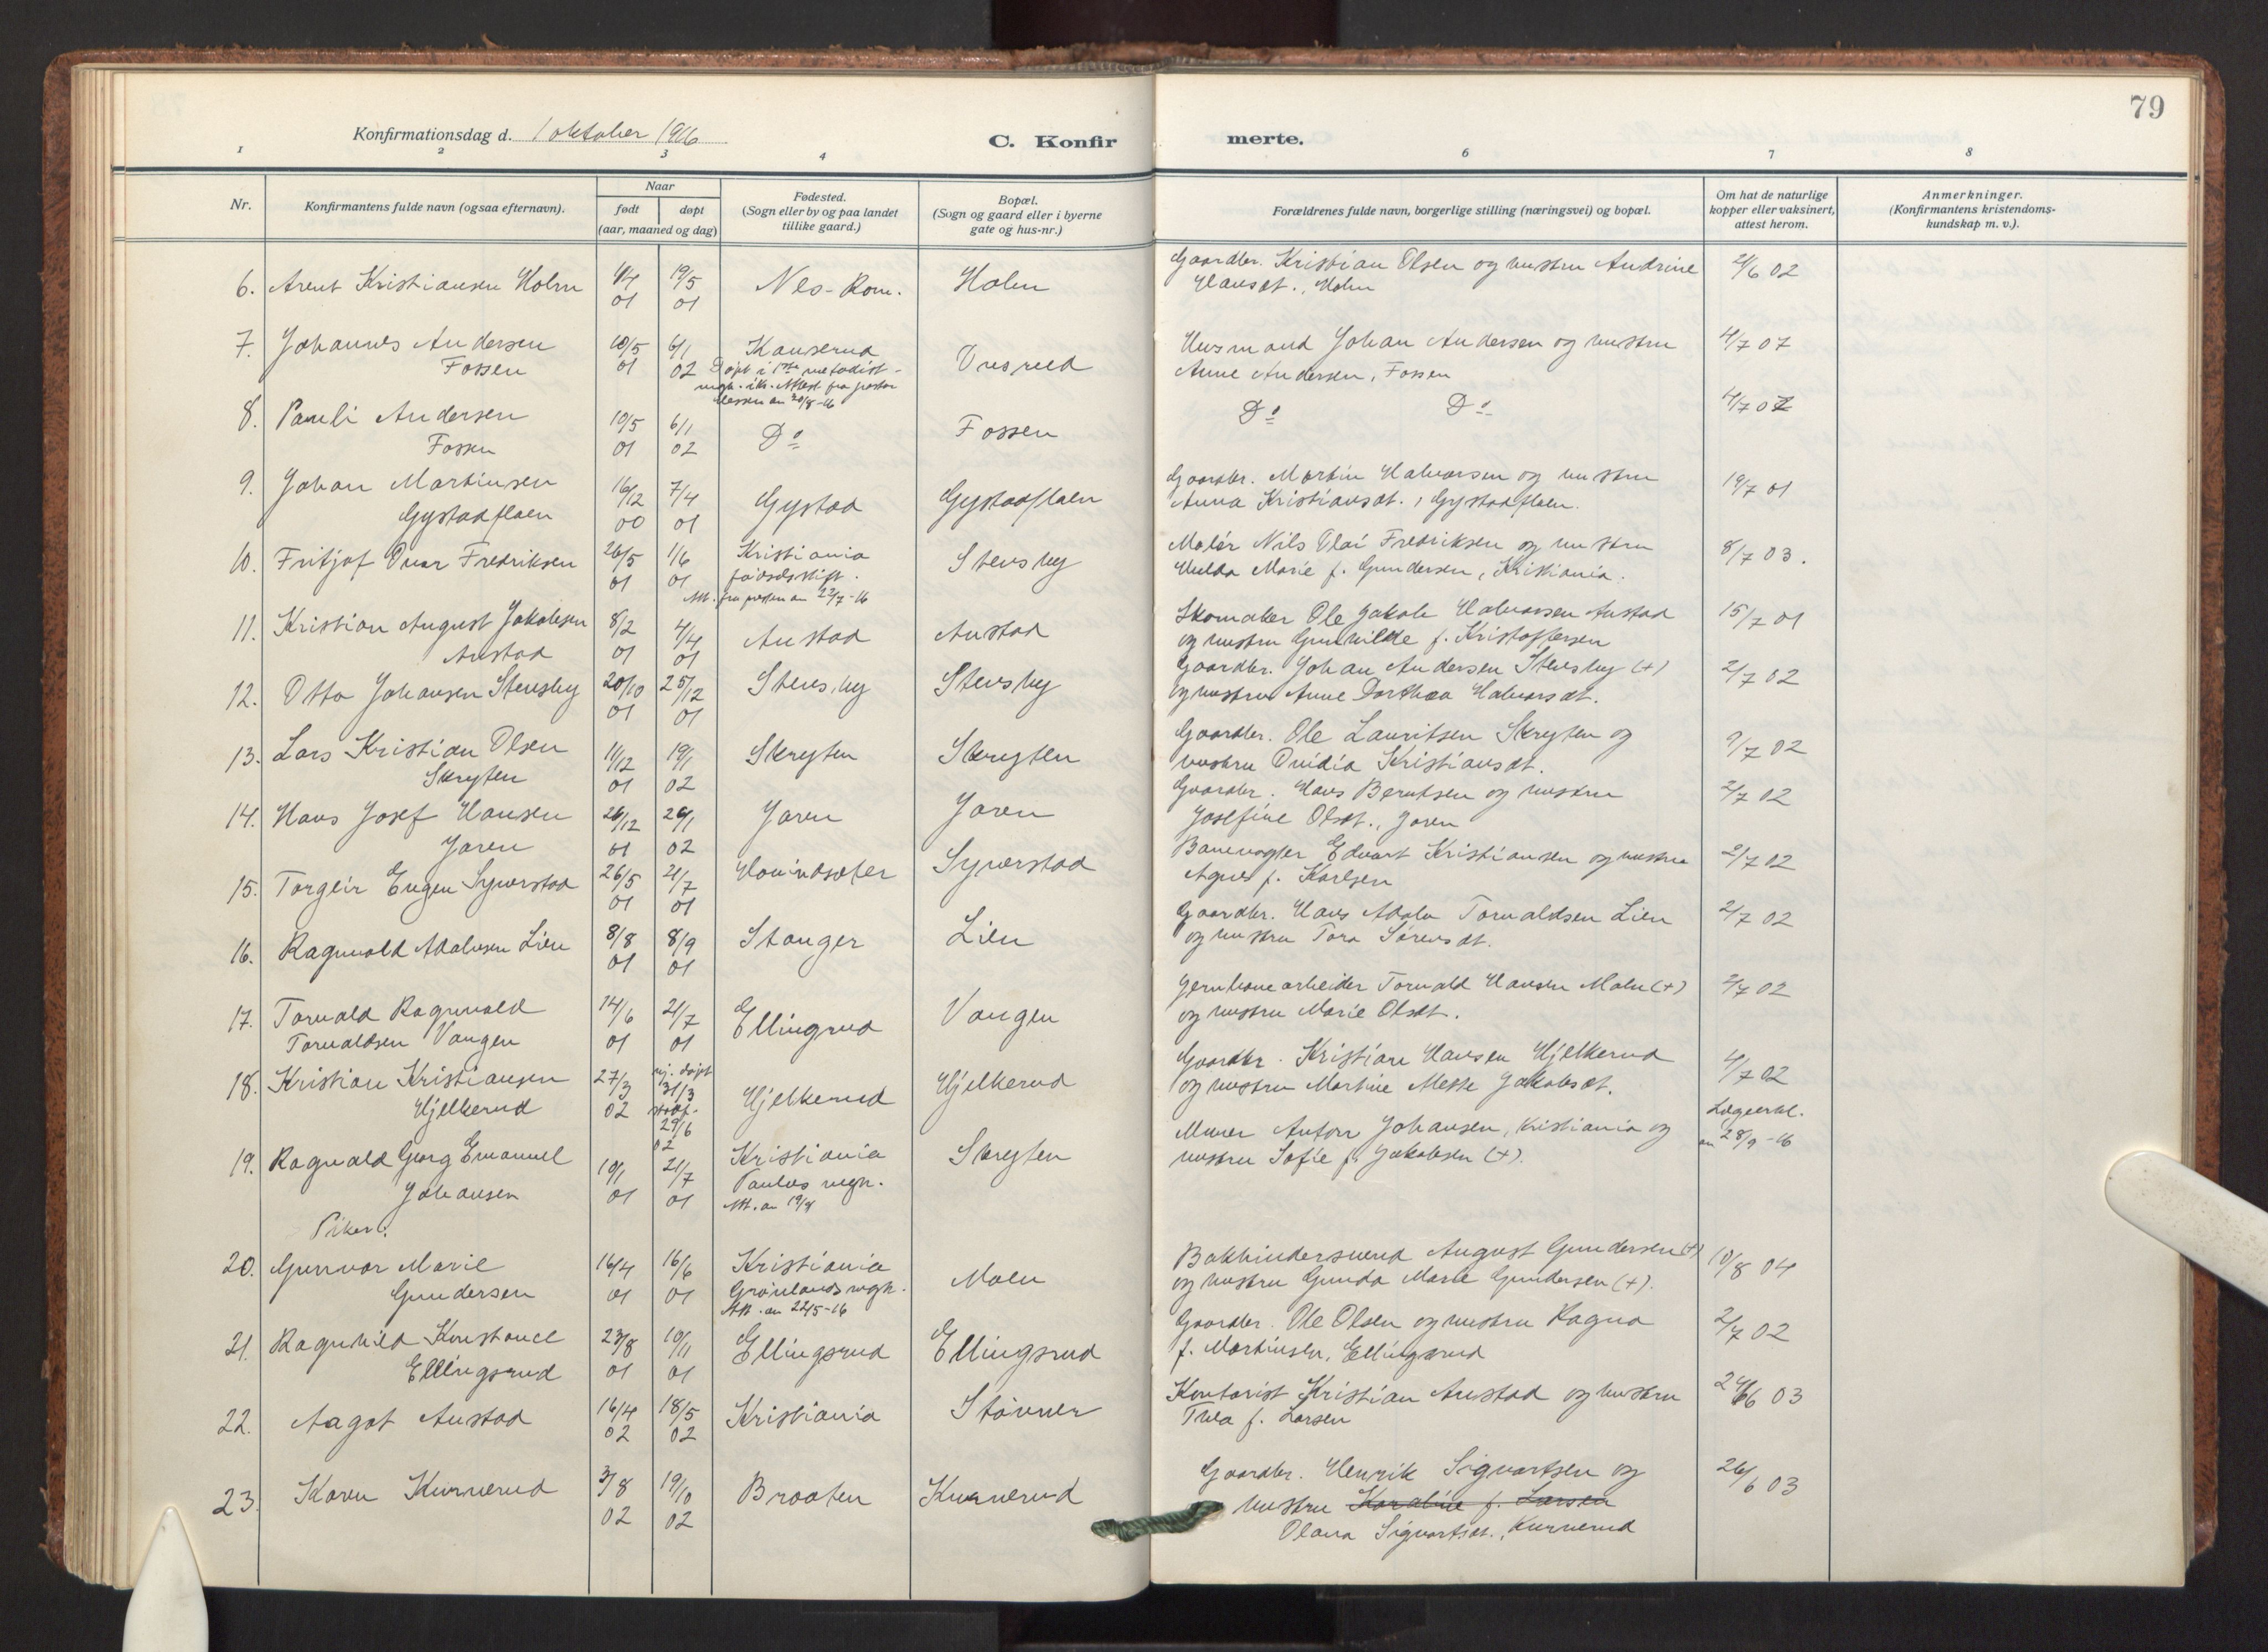 79
Konfirmationsdag d. 1 oktober 1916
C. Konfir
merte.
1 2 3 4 6 7 8
Nr.
Konfirmantens fulde navn (ogsaa efternavn).
Naar
født døpt
(aar, maaned og dag)
Fødested.
(Sogn eller by og paa landet
tillike gaard.)
Bopæl.
(Sogn og gaard eller i byerne
gate og hus-nr.)
Forældrenes fulde navn, borgerlige stilling (næringsvei) og bopæl.
Om hat de naturlige
kopper eller vaksinert,
attest herom.
Anmerkninger.
(Konfirmantens kristendoms-
kundskap m. v.).
6. Arent Kristiansen Holm 4/4 01 19/5 01 Nes-Rom. Holm
Gaardbr. Kristian Olsen og hustru Andrine
Hansdt., Holm
2/6 02
7. Johannes Andersen
Fossen
10/5 01 6/1 02
Kauserud
Døpt i 1ste metodist-
mgh. Attest fra pastor
20/8-16
Vusrud
Husmand Johan Andersen og hustru
Anne Andersen, Fossen
4/7 07
8. Pauli Andersen
Fossen
10/5 01 6/1 02 Do Fossen
Do Do
4/7 07
9. Johan Martinsen
Gystadflaen
16/12 00 7/4 01 Gystad Gystadflaen
Gaardbr. Martin Halvorsen og hustru
Anna Kristiansdt., Gystadflaen.
19/7 01
10. Fritjof Ivar Fredriksen 26/5 01 1/6 01
Kristiania
fødselsstift.
Att. fra presten an 22/7-16
Stensby
Maler Nils Olai Fredriksen og hustru
Hulda Marie f. Gundersen, Kristiania.
8/7 03.
11. Kristian August Jakobsen
Austad
8/2 01 4/4 01 Austad Austad
Skomaker Ole Jakob Halvorsen Austad
og hustru Gunhilde f. Kristoffersen
15/7 01
12. Otto Johansen Stensby 20/10 01 25/12 01 Stensby Stensby
Gaardbr. Johan Andersen Stensby (+)
og hustru Anne Dorthea Halvorsdt.
2/7 02
13. Lars Kristian Olsen
Skryten
11/12 01 19/1 02 Skryten Skryten
Gaardbr. Ole Lauritsen Skryten og
hustru Ovidia Kristiansdt.
9/7 02
14. Hans Josef Hansen
Jaren
26/12 01 26/1 02 Jaren Jaren
Gaardbr. Hans Berntsen og hustru
Josefine Olsdt., Jaren
2/7 02
15. Torgeir Eugen Syverstad 26/5 01 21/7 01 Hovindsæter Syverstad
Banevogter Edvart Kristiansen og hustru
Agnes f. Karlsen
2/7 02
16. Ragnvald Adalvsen Lien 8/8 01 8/9 01 Stanger Lien
Gaardbr. Hans Adalv Torvaldsen Lien
og hustru Tora Sørensdt.
2/7 02
17. Torvald Ragnvald
Torvaldsen Vangen
14/6 01 21/7 01 Ellingrud Vangen
Jernbanearbeider Torvald Hansen Malm (+)
og hustru Marie Olsdt.
2/7 02
18. Kristian Kristiansen
Hjelkerud
27/3 02
hj. døpt
31/3
stadf.
29/6
02
Hjelkerud Hjelkerud
Gaardbr. Kristian Hansen Hjelkerud
og hustru Martine Mette Jakobsdt.
4/7 02
19. Ragnvald Georg Emanuel
Johansen
10/1 01 21/7 01
Kristiania
Paulus mgh.
Att. an 19/8
Skryten
Murer Anton Johansen, Kristiania og
hustru Sofie f. Jakobsen (+).
Lægeerkl.
an 28/9-16
Piker:
20. Gunvor Marie
Gundersen
16/4 01 16/6 01
Kristiania
Grønlands mgh.
Att. an 22/5-16
Moen
Bokbindersvend August Gundersen (+)
og hustru Gunda Marie Gundersen (+).
10/8 04
21. Ragnhild Konstance
Ellingsrud
23/8 01 10/11 01 Ellingsrud Ellingsrud
Gaardbr. Ole Olsen og hustru Ragna
f. Martinsen, Ellingsrud
2/7 02
22. Aagot Austad 16/4 02 18/5 02 Kristiania Støvner
Kontorist Kristian Austad og hustru
Thea f. Larsen
24/6 03
23. Karen Kurverud 3/8 02 19/10 02 Braaten Kurverud
Gaardbr. Henrik Sigvartsen og
hustru Karoline f. Larsen
Olava Sigvartsdt., Kurverud
26/6 03